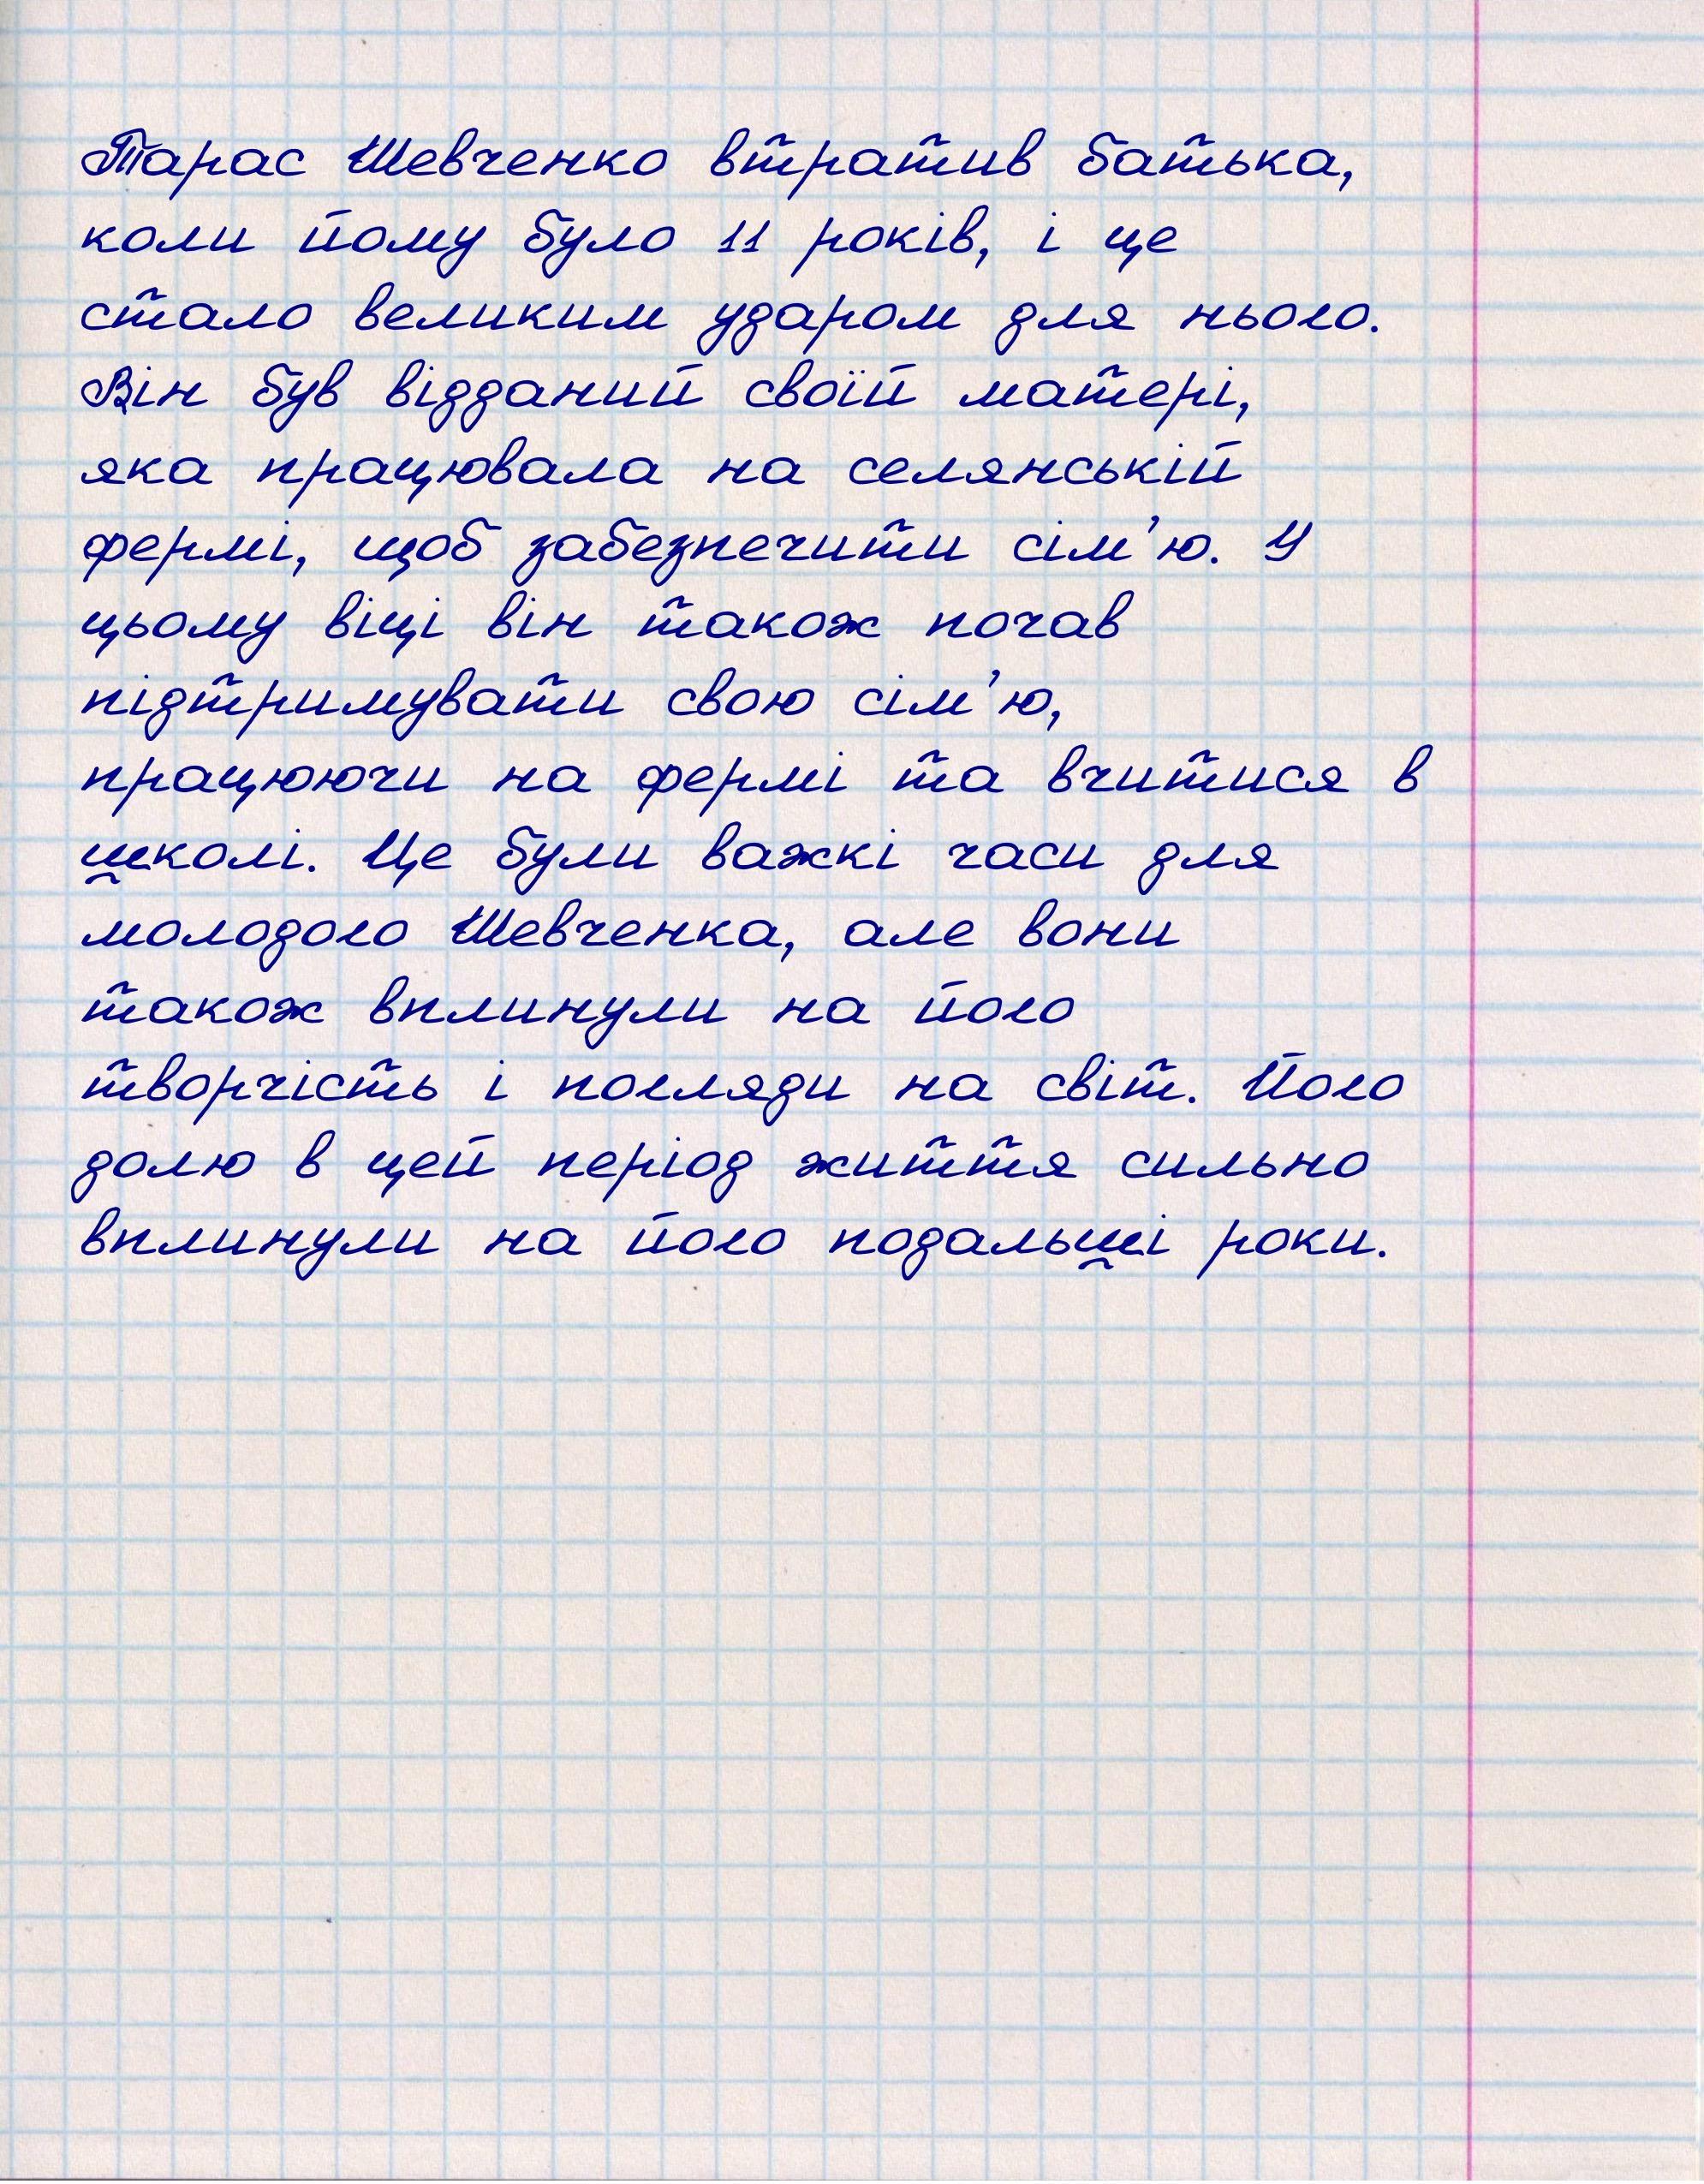 Тарас Шевченко втратив батька,
коли йому було 11 років, і це
стало великим ударом для нього.
Він був відданий своїй матері,
яка працювала на селянській
фермі, щоб забезпечити сім'ю. У
цьому віці він також почав
підтримувати свою сім'ю,
працюючи на фермі та вчитися в
школі. Це були важкі часи для
молодого Шевченка, але вони
також вплинули на його
творчість і погляди на світ. Його
долю в цей період життя сильно
вплинули на його подальші роки.